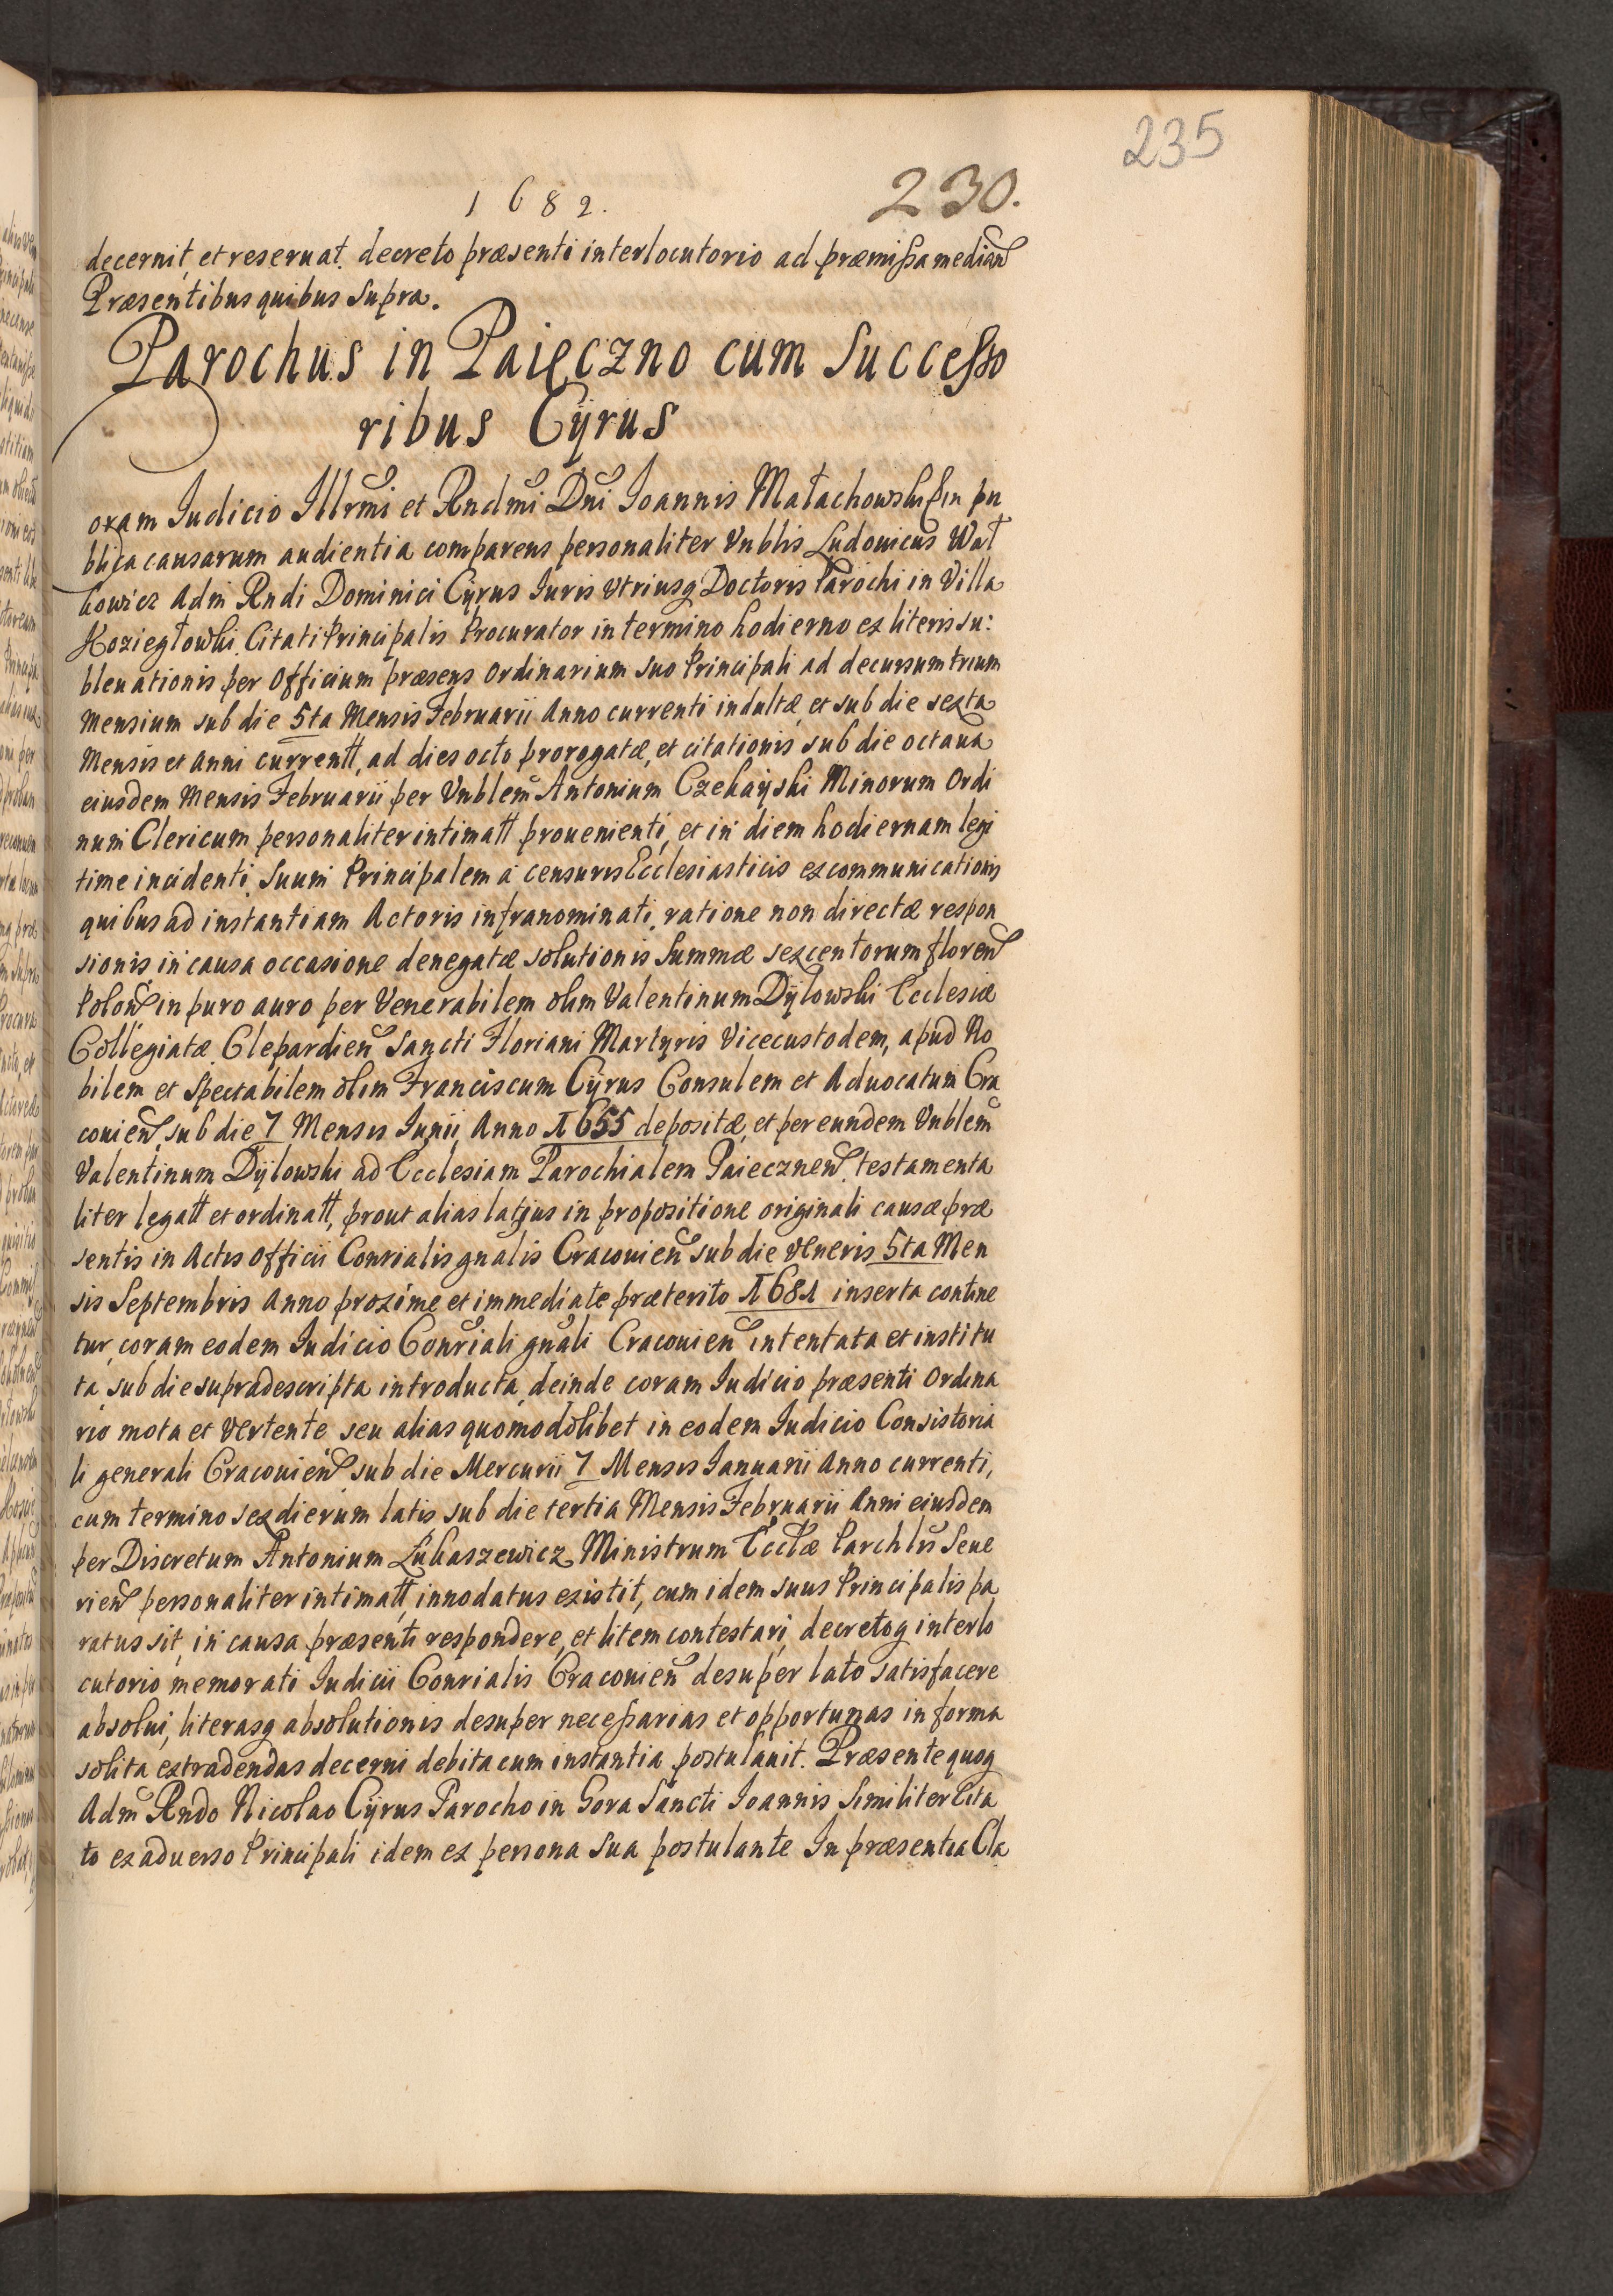 235
1682.
230.
decernit, et reseruat. decreto præsenti interlocutorio ad præmissa median
Præsentibus quibus supra.
Parochus in Paięczno cum Successo
ribus Cÿrus
Coram Iudicio Illrmi et Rndmi Dni Ioannis Małachowski in pu
blica causarum audientia comparens personaliter Vnblis Ludouicus Wał
kowicz Adm Rndi Dominici Cÿrus Iuris vtriusq Doctoris Parochi in Villa
Koziegłowki Citati Principalis Procurator in termino hodierno ex literis su:
bleuationis per Officium præsens Ordinarium suo Principali ad decursum trium
Mensium sub die 5ta Mensis Februarii Anno currenti indultæ et sub die sexta
Mensis et Anni currentt, ad dies octo prorogatæ, et citationis sub die octaua
eiusdem Mensis Februarii per Vnblem Antonium Czekaÿski Minorum Ordi
num Clericum personaliter intimatt prouenienti, et in diem hodiernam legi
time incidenti, Suum Principalem à censuris Ecclesiasticis excommunicationis
quibus ad instantiam Actoris infranominati, ratione non directæ respon
sionis in causa occasione denegatæ solutionis Summæ sexcentorum floren
Polon in puro auro per Venerabilem olim Valentinum Dÿlowski Ecclesiæ
Collegiatæ Clepardien Sancti Floriani Martyris Vicecustodem, apud No
bilem et Spectabilem olim Franciscum Cÿrus Consulem et Aduocatum Cra
couien sub die 7 Mensis Iunii Anno 1655 depositæ, et per eundem Vnblem
Valentinum Dÿlowski ad Ecclesiam Parochialem Paiecznen testamenta
liter legatt et ordinatt, prout alias latius in propositione originali causæ præ
sentis in Actis Officii Conrialis gnalis Cracouien sub die Veneris 5ta Men
sis Septembris Anno proxime et immediate præterito 1681 inserta contine
tur, coram eodem Iudicio Conriali gnali Cracouien intentata et institu
ta, sub die supradescripta introducta, deinde coram Iudicio præsenti Ordina
rio mota et vertente seu alias quomodolibet in eodem Iudicio Consistoria
li generali Cracouien sub die Mercurii 7 Mensis Ianuarii Anno currenti,
cum termino sex dierum latis sub die tertia Mensis Februarii Anni eiusdem
per Discretum Antonium Łukaszewicz Ministrum Ecclæ Parchlis Seue
rien personaliter intimatt, innodatus existit, cum idem suus Principalis pa
ratus sit, in causa præsenti respondere, et litem contestari, decretoq interlo
cutorio memorati Iudicii Conrialis Cracouien desuper lato satisfacere
absolui, literasq absolutionis desuper necessarias et opportunas in forma
solita extradendas decerni debita cum instantia postulauit. Præsente quoq
Adm Rndo Nicolao Cÿrus Parocho in Gora Sancti Ioannis Similiter Cita
to ex aduerso Principali idem ex persona sua postulante In præsentia Cla